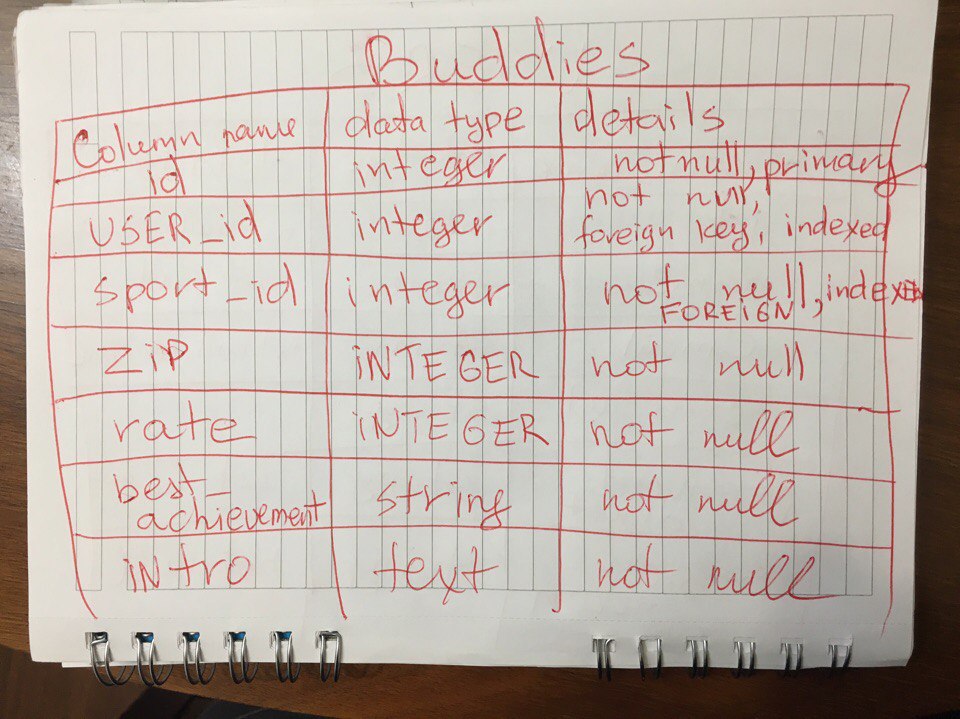 Buddies
Column name data type details
id integer not null, primary
USER_id integer not null, foreign key, indexed
sport_id integer not null, indexed FOREIGN
ZiP iNTEGER not null
rate iNTEGER not null
best_achievement string not null
iNtro text not null